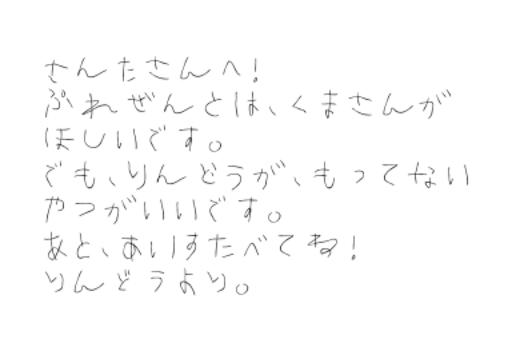 さんたさんへ!
ぷれぜんとは、くまさんが
ほしいです。
でも、りんどうが、もってない
やつがいいです。
あと、あいすたべてね!
りんどうより。